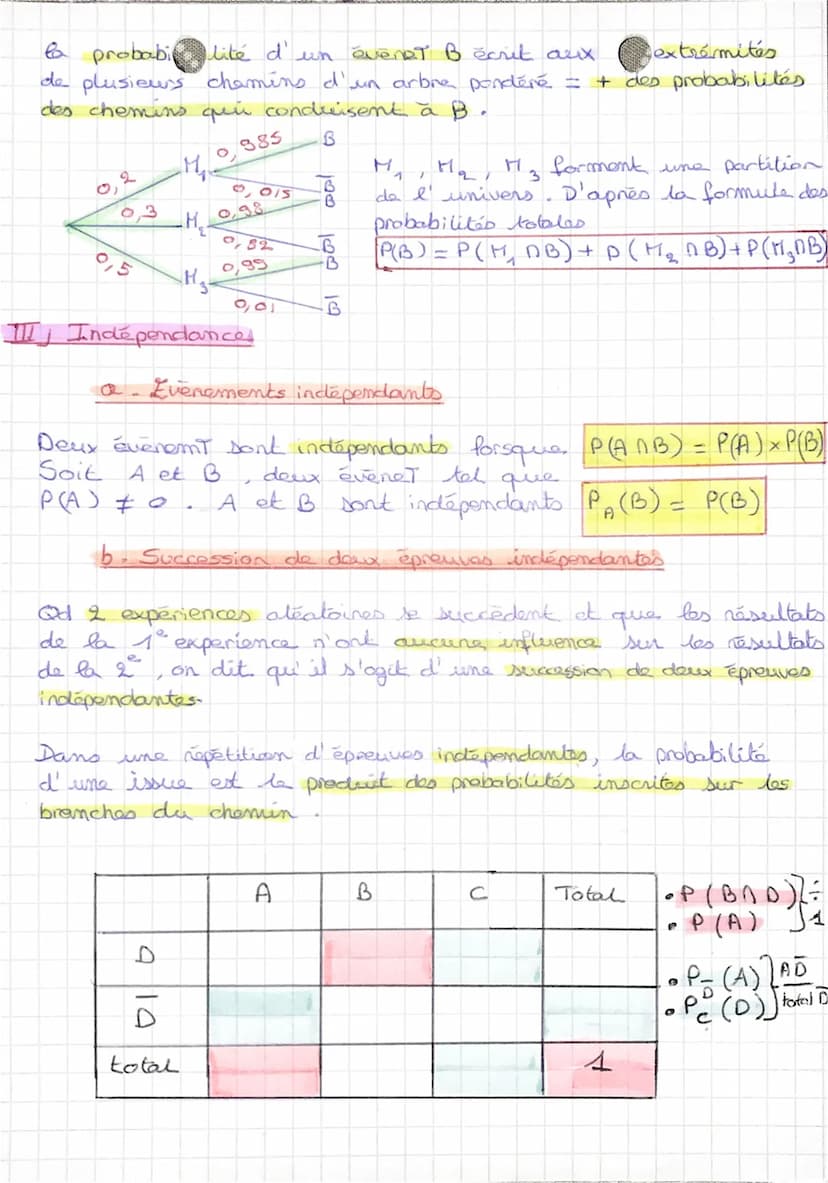 la probabilité d'un évèneT B écrit aux extrémités
de plusieurs chemins d'un arbre pondéré = + des probabilités
des chemins qui conduisent à B.
0,2 M₁ 0,985 B
0,015 B̅
0,3 M₂ 0,98 B
0,82 B̅
0,5 M₃ 0,99 B
0,01 B̅
M₁, M₂, M₃ forment une partition
de l'univers. D'après la formule des
probabilités totales
P(B) = P(M₁ ∩B) + P(M₂ ∩B)+P(M₃∩B)
III, Indépendances
a - Évènements indépendants
Deux évènemT sont indépendants lorsque P(A∩B) = P(A)×P(B)
Soit A et B, deux évèneT tel que
P(A) ≠ 0. A et B sont indépendants P_A(B) = P(B)
b - Succession de deux épreuves indépendantes
Qd 2 expériences aléatoires se succèdent et que les résultats
de la 1ᵉ experience n'ont aucune influence sur les résultats
de la 2ᵉ, on dit qu'il s'agit d'une succession de deux épreuves
indépendantes.
Dans une répétition d'épreuves indépendantes, la probabilité
d'une issue est le produit des probabilités inscrites sur les
branches du chemin.
A B C Total
D
D̅
total 1
• P(B∩D) ÷
• P(A) 1
• P_D̅(A) AD̅
• P_C(D) total D̅